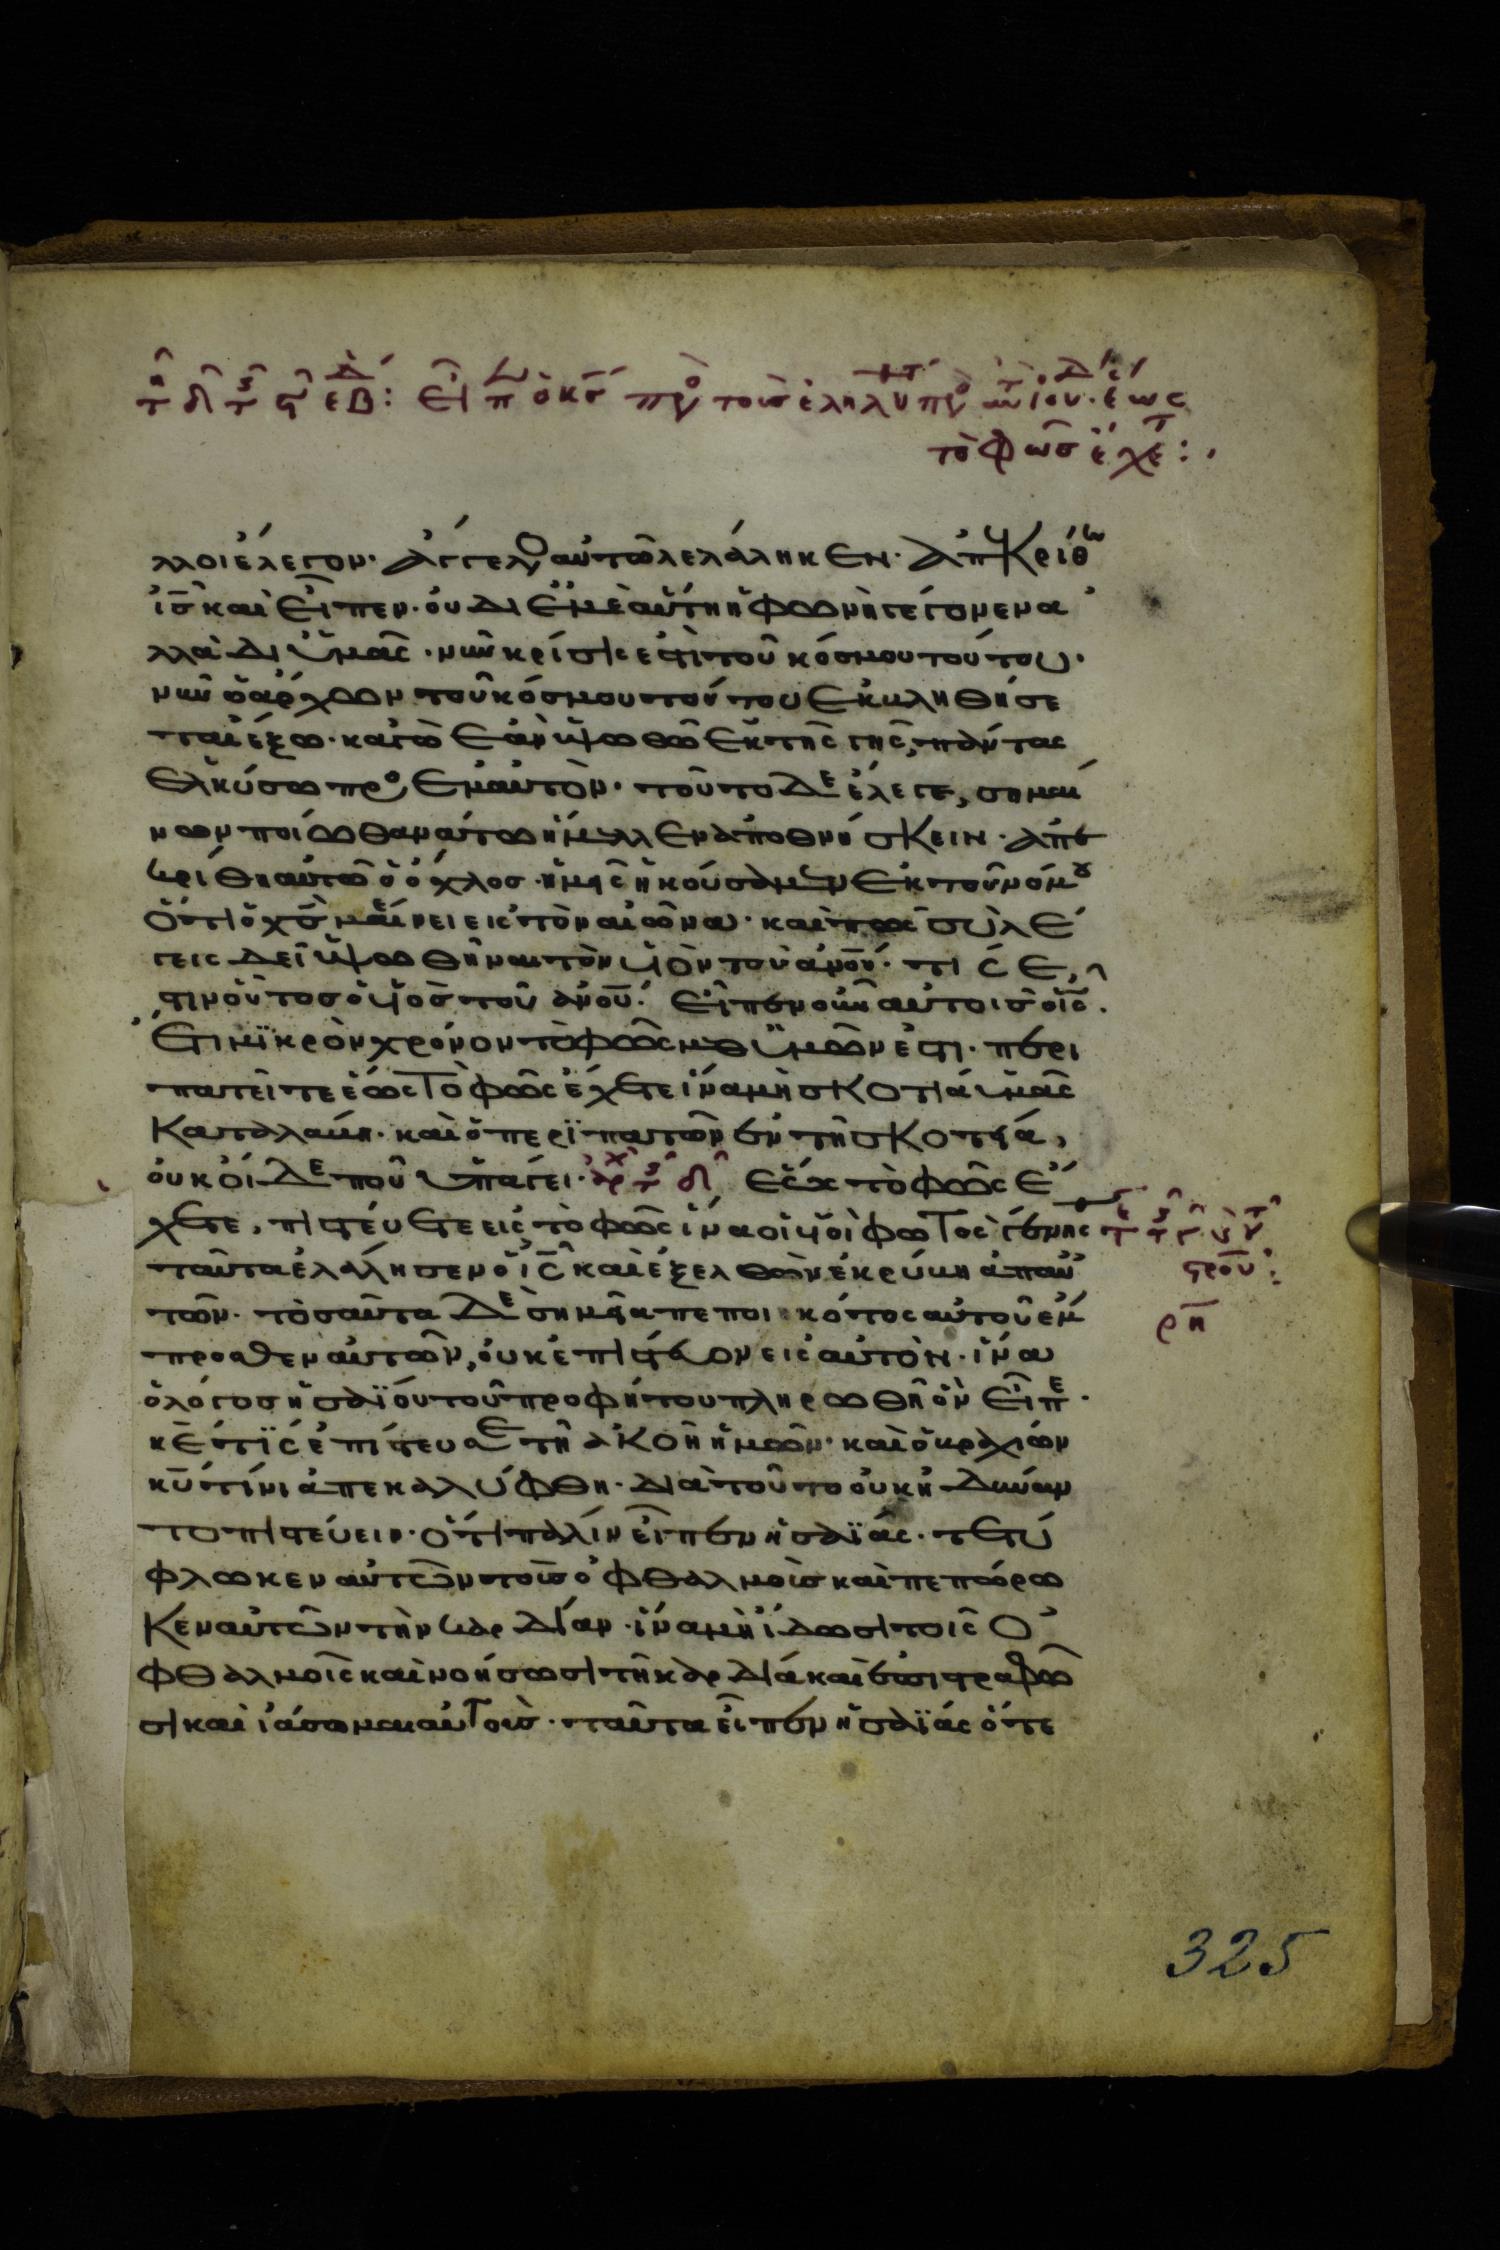 τῇ δ τῆς ϛ ἑβδ: εἶπ ὁ κς πρὸς τοὺς ἐληλυ πρὸς αὐτ ἰουδ· ἕως
τὸ φῶσ ἔχετ:
λλοι ἔλεγον· ἄγγελος αὐτῶ λελάληκεν· ἀπεκρίθη
ις καὶ εἶπεν· οὐ δι ἐμὲ αὕτη ἡ φωνὴ γέγονεν ἀ
λλὰ δι ὑμᾶς· νῦν κρίσις ἐστὶ τοῦ κόσμου τούτου·
νῦν ὁ ἄρχων τοῦ κόσμου τούτου ἐκβληθήσε
ται ἔξω· κἀγὼ ἐὰν ὑψωθῶ ἐκ τῆς γῆς, πάντας
ἑλκύσω πρὸς ἐμαυτόν· τοῦτο δὲ ἔλεγε, σημαί
νων ποίω θανάτω ἤμελλεν ἀποθνήσκειν· ἀπε
κρίθη αὐτῶ ὁ ὄχλος· ἡμεῖς ἠκούσαμεν ἐκ τοῦ νόμου
ὅτι ὁ χς μένει εἰς τὸν αἰῶνα· καὶ πῶς σὺ λέ
γεις δεῖ ὑψωθῆναι τὸν υἱὸν τοῦ ανου· τίς ἐ
στιν οὗτος ὁ υἱὸς τοῦ ανου· εἶπεν οὖν αὐτοῖς ὁ ις·
ἔτι μικρὸν χρόνον τὸ φῶς μεθ ὑμῶν ἐστι· περι
πατεῖτε ἕως τὸ φῶς ἔχετε ἵνα μὴ σκοτία ὑμᾶς
καταλάβη· καὶ ὁ περιπατῶν ἐν τῆ σκοτία,
οὐκ οἶδε ποῦ ὑπάγει· ἀρχ τῆς δ ἕως τὸ φῶς ἔ
χετε, πιστεύετε εἰς τὸ φῶς ἵνα υἱοὶ φωτὸς γένησθε
ταῦτα ἐλάλησεν ὁ ις καὶ ἐξελθὼν ἐκρύβη ἀπ αὐ
τῶν· τοσαῦτα δὲ σημεῖα πεποιηκότος αὐτοῦ ἔμ
προσθεν αὐτῶν, οὐκ ἐπίστευον εἰς αὐτόν· ἵνα
ὁ λόγος ἡσαΐου τοῦ προφήτου πληρωθῆ ὃν εἶπε·
κε τίς ἐπίστευσε τῆ ἀκοῆ ἡμῶν· καὶ ὁ βραχίων
κυ τίνι ἀπεκαλύφθη· διὰ τοῦτο οὐκ ἠδύναν
το πιστεύειν· ὅτι πάλιν εἶπεν ἡσαΐας· τετύ
φλωκεν αὐτῶν τοὺς ὀφθαλμοὺς καὶ πεπώρω
κεν αὐτῶν τὴν καρδίαν· ἵνα μὴ ἴδωσι τοῖς ὀ
φθαλμοῖς καὶ νοήσωσι τῆ καρδία καὶ ἐπιστραφῶ
σι καὶ ἰάσωμαι αὐτούς· ταῦτα εἶπεν ἡσαΐας ὅτε
ρη
325